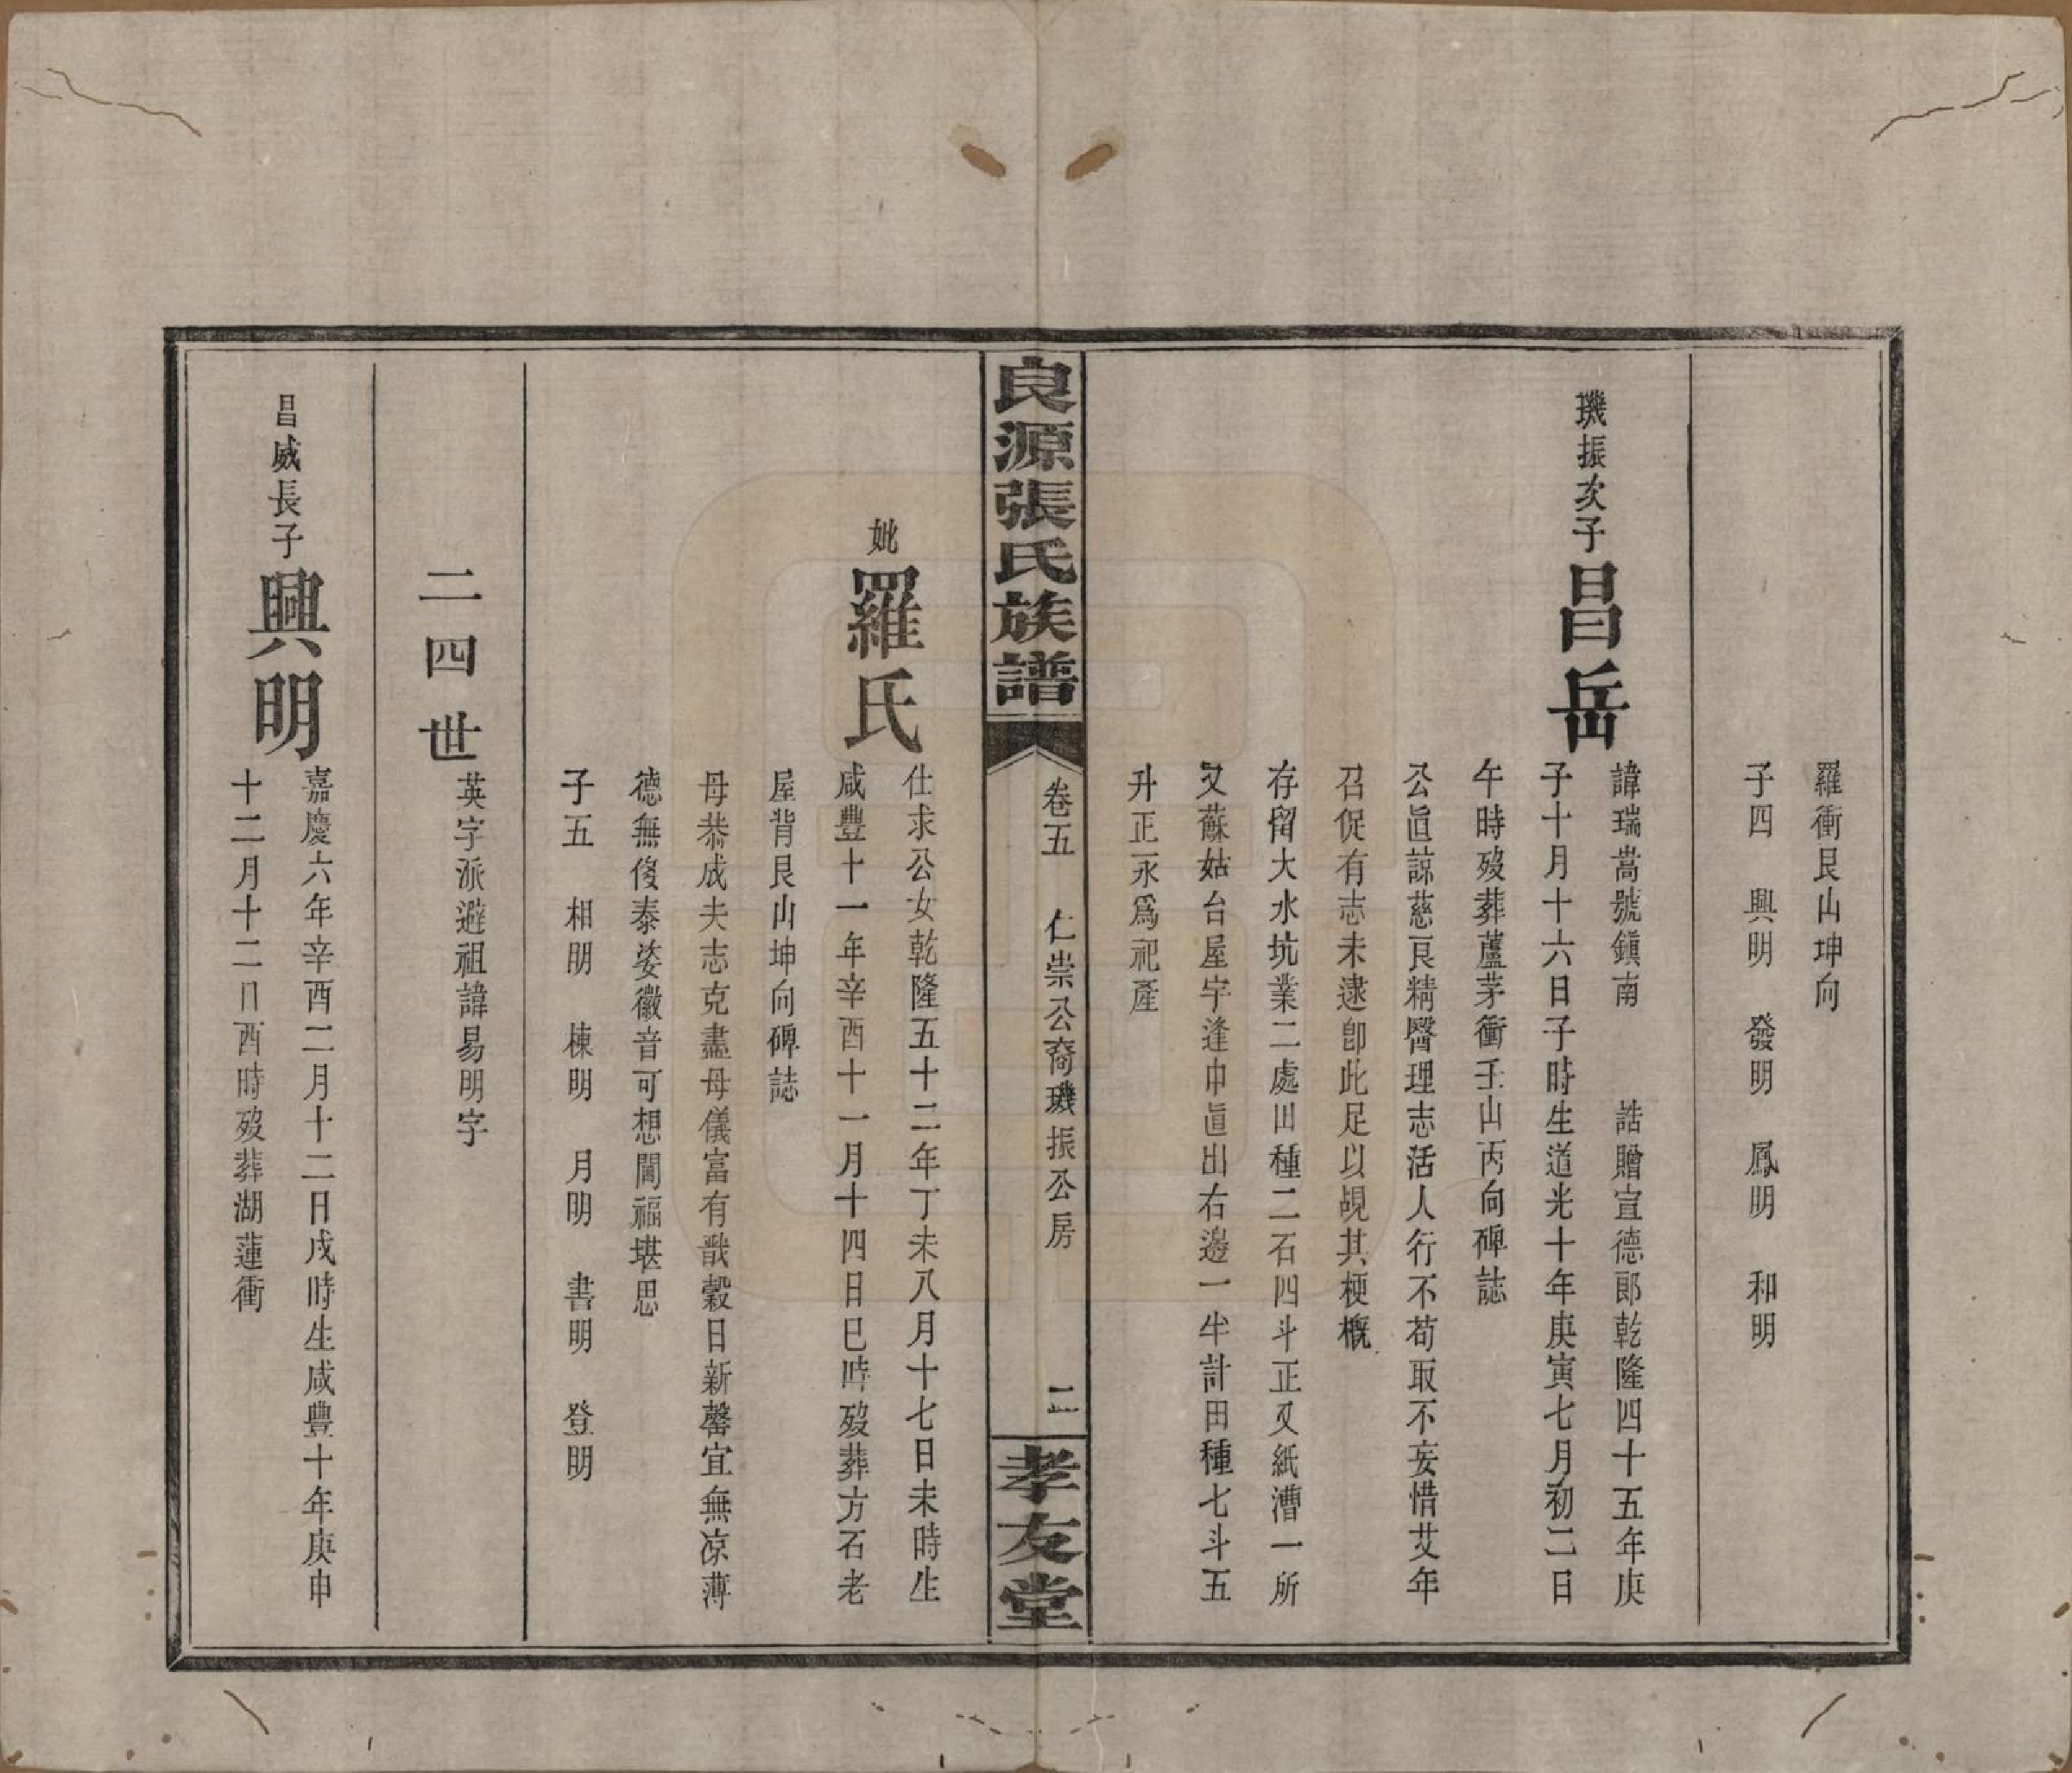 羅衝艮山坤向
子四　興明　發明　鳳明　和明
璣振次子昌岳
諱瑞嵩號鎮南　誥贈宣德郎乾隆四十五年庚
子十月十六日子時生道光十年庚寅七月初二日
午時歿葬蘆茅衝壬山丙向碑誌
公眞諒慈良精醫理志活人行不苟取不妄惜艾年
召促有志未逮卽此足以覘其梗概
存留大水坑業二處田種二石四斗正又紙漕一所
又蘇姑台屋宇逢中直出右邊一半計田種七斗五
升正永爲祀產
良源張氏族譜
卷五　仁崇公裔璣振公房
二
孝友堂
妣羅氏
仕求公女乾隆五十二年丁未八月十七日未時生
咸豐十一年辛酉十一月十四日巳時歿葬方石老
屋背艮山坤向碑誌
母恭成夫志克盡母儀富有戩穀日新罄宜無凉薄
德無俊泰姿徽音可想閫福堪思
子五　相明　棟明　月明　書明　登明
二四世
英字派避祖諱易明字
昌威長子興明
嘉慶六年辛酉二月十二日戌時生咸豐十年庚申
十二月十二日酉時歿葬湖蓮衝